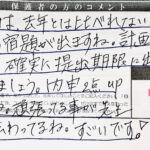 保護者の方のコメント
は、去年とは比べれない
宿題が出ますね。計画
確実に提出期限に出
ま(エ)。内申点up
頑張ってる事が先生
伝わってるね。すごいです。